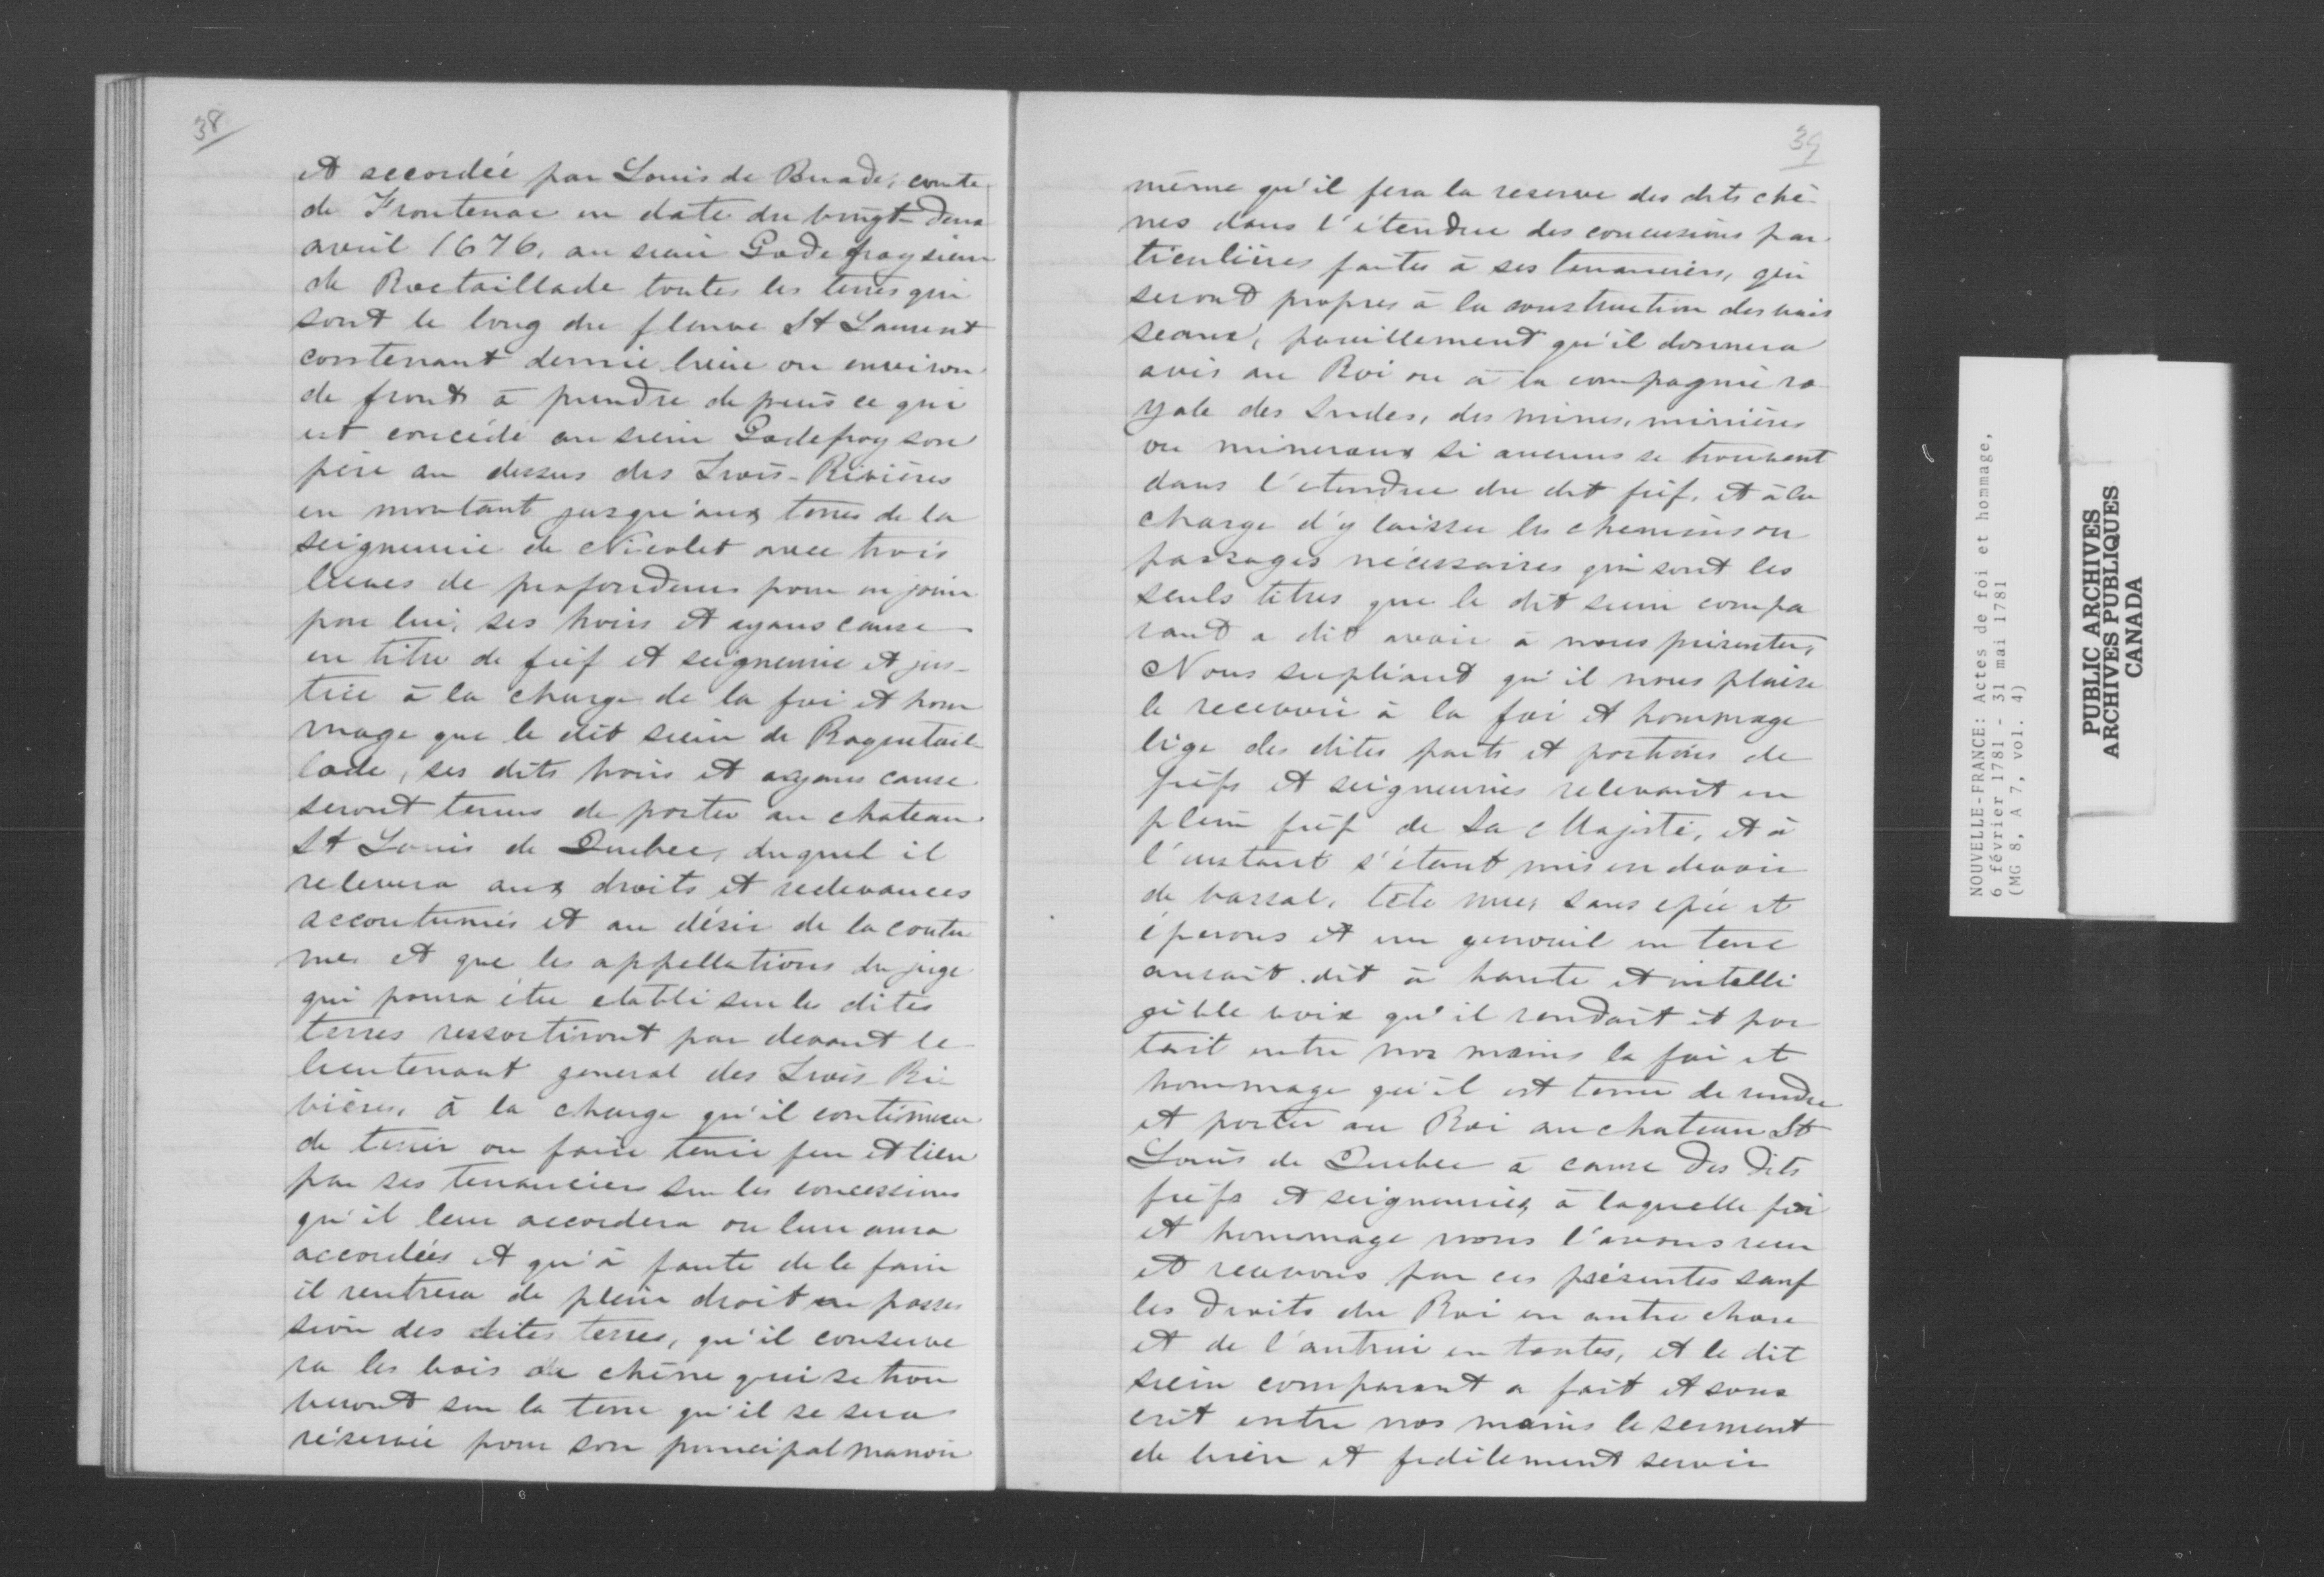 38
et accordée par Louis de Buade, comte
de Frontenac en date du vingt-deux
avril 1676, au sieur Godefroy sieur
de Roctaillade toutes les terres qui
sont le long du fleuve St Laurent
contenant demie lieue ou environ
de front à prendre depuis ce qui
est concédé au sieur Godefroy son
père au dessus des Trois-Rivières
en montant jusqu'aux terres de la
seigneurie de Nicolet avec trois
lieues de profondeur pour en jouir
par lui, ses hoirs et ayans cause
en titre de fief et seigneurie et jus-
tice à la charge de la foi et hom
mage que le dit sieur de Roquetail-
lade, ses dits hoirs et ayans cause
seront tenus de porter au chateau
St Louis de Quebec, duquel il
relevera aux droits et redevances
accoutumés et au désir de la coutu
me et que les appellations du juge
qui poura être etabli sur les dites
terres ressortiront par devant le
lieutenant general des Trois-Ri-
vières, à la charge qu'il continuera
de tenir ou faire tenir feu et lieu
par ses tenanciers sur les concessions
qu'il leur accordera ou leur aura
accordées et qu'à faute de le faire
il rentrera de plein droit en posses
sion des dites terres, qu'il conserve
ra les bois de chêne qui se trou
veront sur la terre qu'il se sera
réservée pour son principal manoir
39
même qu'il fera la reserve des dits chê-
nes dans l'étendue des concessions par
ticulières faites à ses tenanciers, qui
seront propres à la construction des vais
seaux, pareillement qu'il donnera
avis au Roi ou à la compagnie ro
yale des Indes, des mines, minières
ou mineraux si aucuns se trouvent
dans l'etendue du dit fief, et à la
charge d'y laisser les chemins ou
passages nécessaires qui sont les
seuls titres que le dit sieur compa
rant a dit avoir à nous présenter,
Nous supliant qu'il nous plaise
le recevoir à la foi et hommage
lige des dites parts et portions de
fiefs et seigneuries relevant en
plein fief de Sa Majesté, et à
l'instant s'étant mis en devoir
de vassal, tête nue, sans epée et
éperons et un genouil en terre
auroit dit à haute et intelli
gible voix qu'il rendait et por
tait entre nos mains la foi et
hommage qu'il est tenu de rendre
et porter au Roi au chateau St
Louis de Quebec à cause des dits
fiefs et seigneuries, à laquelle foi
et hommage nous l'avons reçu
et recevons par ces présentes sauf
les droits du Roi en autre chose
et de l'autrui en toutes, et le dit
sieur comparant a fait et sous
crit entre nos mains le serment
de bien et fidèlement servir
NOUVELLE-FRANCE: Actes de foi et hommage,
6 février 1781 - 31 mai 1781
(MG 8, A 7, vol. 4)
PUBLIC ARCHIVES
ARCHIVES PUBLIQUES
CANADA